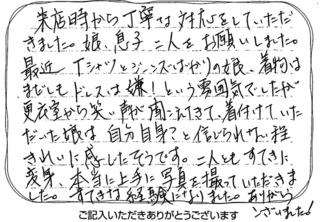 来店時から丁寧な対応をしていただ
きました。娘、息子 二人をお願いしました。
最近 Tシャツとジーンズばかりの娘、着物は
まだしもドレスは嫌！という雰囲気でしたが
更衣室から笑い声が聞こえてきて、着付けていた
だいた娘は自分自身？と信じられせん程
きれいに感じたそうです。二人ともすてきに
変身、本当に上手に写真を撮っていただきま
した。すてきな経験になりました。ありがとう
ございました！
ご記入いただきありがとうございます